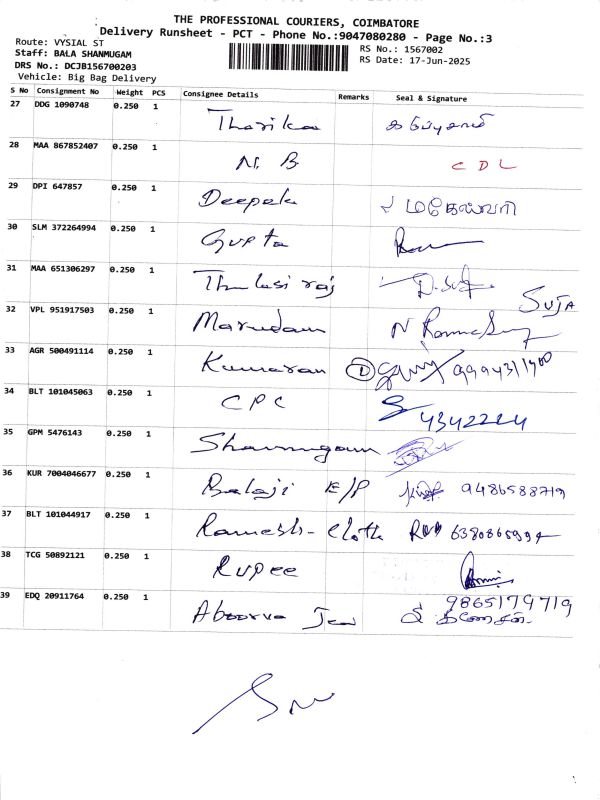 THE PROFESSIONAL COURIERS, COIMBATORE
Delivery Runsheet - PCT - Phone No.:9047080280 - Page No.:3
Route: VYSIAL ST
Staff: BALA SHANMUGAM
DRS No.: DCJB156700203
Vehicle: Big Bag Delivery
RS No.: 1567002
RS Date: 17-Jun-2025
S No Consignment No Weight PCS Consignee Details Remarks Seal & Signature
27 DDG 1090748 0.250 1 Tharikaa கருப்புசாமி
28 MAA 867852407 0.250 1 N. B CDL
29 DPI 647857 0.250 1 Deepak மகேஸ்வரி
30 SLM 372264994 0.250 1 Gupta
31 MAA 651306297 0.250 1 Thulasi raj
SUJA
32 VPL 951917503 0.250 1 Marudam
33 AGR 500491114 0.250 1 Kumaran
34 BLT 101045063 0.250 1 CPC 4342224
35 GPM 5476143 0.250 1 Shanmugam
36 KUR 7004046677 0.250 1 Balaji E/P 9486588719
37 BLT 101044917 0.250 1 Ramesh- Cloth
38 TCG 50892121 0.250 1 Rupee
39 EDQ 20911764 0.250 1 Aboorva 9865179719
கணேசன்